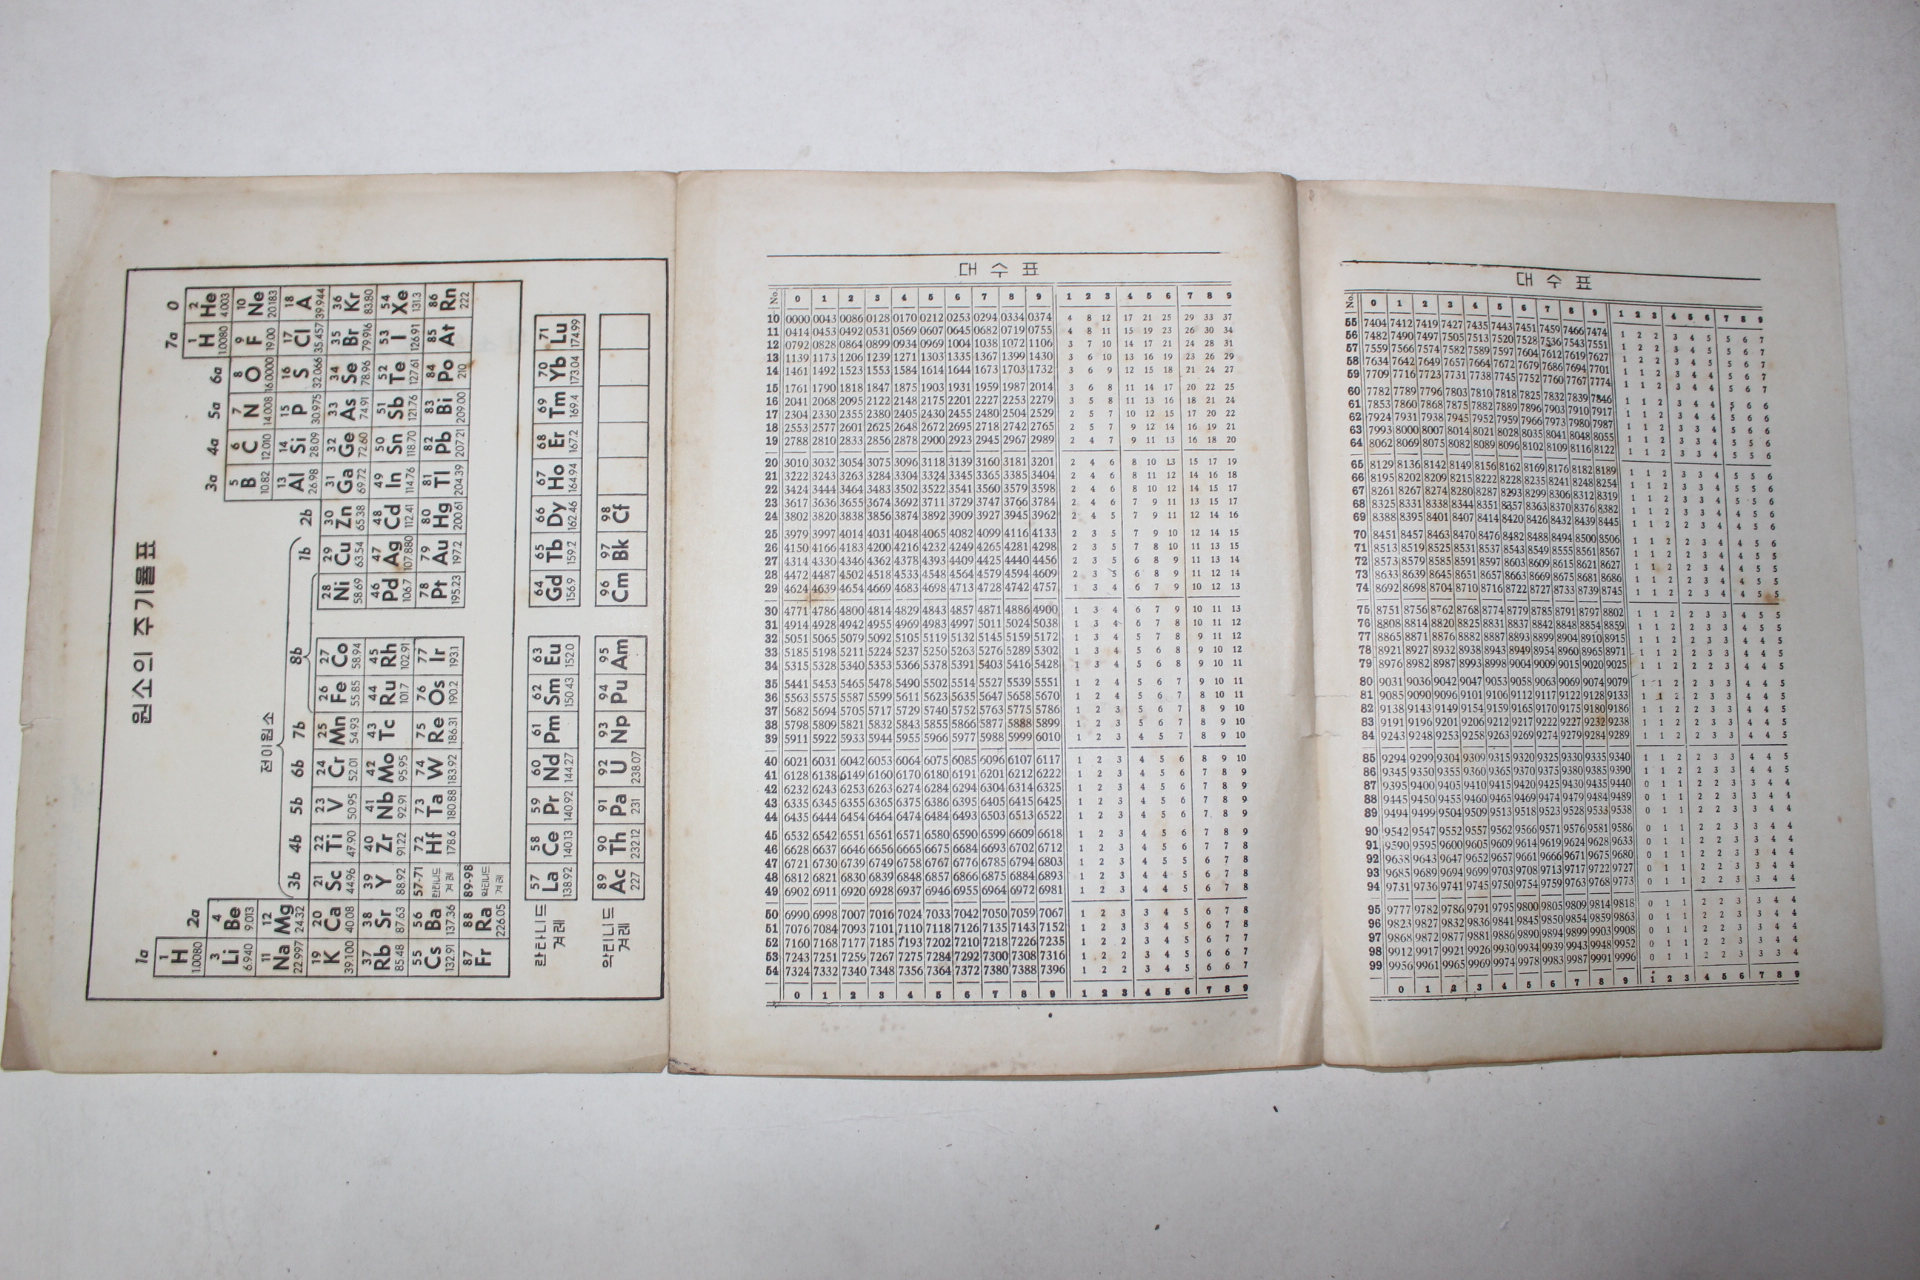 원소의 주기율표
1a 2a 3b 4b 5b 6b 7b 8b 1b 2b 3a 4a 5a 6a 7a 0
전이원소
1 H 1.0080 1 H 1.0080 2 He 4.003
3 Li 6.940 4 Be 9.013 5 B 10.82 6 C 12.010 7 N 14.008 8 O 16.0000 9 F 19.00 10 Ne 20.183
11 Na 22.997 12 Mg 24.32 13 Al 26.98 14 Si 28.09 15 P 30.975 16 S 32.066 17 Cl 35.457 18 A 39.944
19 K 39.100 20 Ca 40.08 21 Sc 44.96 22 Ti 47.90 23 V 50.95 24 Cr 52.01 25 Mn 54.93 26 Fe 55.85 27 Co 58.94 28 Ni 58.69 29 Cu 63.54 30 Zn 65.38 31 Ga 69.72 32 Ge 72.60 33 As 74.91 34 Se 78.96 35 Br 79.916 36 Kr 83.80
37 Rb 85.48 38 Sr 87.63 39 Y 88.92 40 Zr 91.22 41 Nb 92.91 42 Mo 95.95 43 Tc 44 Ru 101.7 45 Rh 102.91 46 Pd 106.7 47 Ag 107.880 48 Cd 112.41 49 In 114.76 50 Sn 118.70 51 Sb 121.76 52 Te 127.61 53 I 126.91 54 Xe 131.3
55 Cs 132.91 56 Ba 137.36 57-71 란타니드 겨레 72 Hf 178.6 73 Ta 180.88 74 W 183.92 75 Re 186.31 76 Os 190.2 77 Ir 193.1 78 Pt 195.23 79 Au 197.2 80 Hg 200.61 81 Tl 204.39 82 Pb 207.21 83 Bi 209.00 84 Po 210 85 At 86 Rn 222
87 Fr 88 Ra 226.05 89-98 악티니드 겨레
란타니드 겨레 57 La 138.92 58 Ce 140.13 59 Pr 140.92 60 Nd 144.27 61 Pm 62 Sm 150.43 63 Eu 152.0 64 Gd 156.9 65 Tb 159.2 66 Dy 162.46 67 Ho 164.94 68 Er 167.2 69 Tm 169.4 70 Yb 173.04 71 Lu 174.99
악티니드 겨레 89 Ac 227 90 Th 232.12 91 Pa 231 92 U 238.07 93 Np 94 Pu 95 Am 96 Cm 97 Bk 98 Cf
대 수 표
No. 0 1 2 3 4 5 6 7 8 9 1 2 3 4 5 6 7 8 9
10 0000 0043 0086 0128 0170 0212 0253 0294 0334 0374 4 8 12 17 21 25 29 33 37
11 0414 0453 0492 0531 0569 0607 0645 0682 0719 0755 4 8 11 15 19 23 26 30 34
12 0792 0828 0864 0899 0934 0969 1004 1038 1072 1106 3 7 10 14 17 21 24 28 31
13 1139 1173 1206 1239 1271 1303 1335 1367 1399 1430 3 6 10 13 16 19 23 26 29
14 1461 1492 1523 1553 1584 1614 1644 1673 1703 1732 3 6 9 12 15 18 21 24 27
15 1761 1790 1818 1847 1875 1903 1931 1959 1987 2014 3 6 8 11 14 17 20 22 25
16 2041 2068 2095 2122 2148 2175 2201 2227 2253 2279 3 5 8 11 13 16 18 21 24
17 2304 2330 2355 2380 2405 2430 2455 2480 2504 2529 2 5 7 10 12 15 17 20 22
18 2553 2577 2601 2625 2648 2672 2695 2718 2742 2765 2 5 7 9 12 14 16 19 21
19 2788 2810 2833 2856 2878 2900 2923 2945 2967 2989 2 4 7 9 11 13 16 18 20
20 3010 3032 3054 3075 3096 3118 3139 3160 3181 3201 2 4 6 8 10 13 15 17 19
21 3222 3243 3263 3284 3304 3324 3345 3365 3385 3404 2 4 6 8 11 12 14 16 18
22 3424 3444 3464 3483 3502 3522 3541 3560 3579 3598 2 4 6 8 10 12 14 15 17
23 3617 3636 3655 3674 3692 3711 3729 3747 3766 3784 2 4 6 7 9 11 13 15 17
24 3802 3820 3838 3856 3874 3892 3909 3927 3945 3962 2 4 5 7 9 11 12 14 16
25 3979 3997 4014 4031 4048 4065 4082 4099 4116 4133 2 3 5 7 9 10 12 14 15
26 4150 4166 4183 4200 4216 4232 4249 4265 4281 4298 2 3 5 7 8 10 11 13 15
27 4314 4330 4346 4362 4378 4393 4409 4425 4440 4456 2 3 5 6 8 9 11 13 14
28 4472 4487 4502 4518 4533 4548 4564 4579 4594 4609 2 3 5 6 8 9 11 12 14
29 4624 4639 4654 4669 4683 4698 4713 4728 4742 4757 1 3 4 6 7 9 10 12 13
30 4771 4786 4800 4814 4829 4843 4857 4871 4886 4900 1 3 4 6 7 9 10 11 13
31 4914 4928 4942 4955 4969 4983 4997 5011 5024 5038 1 3 4 6 7 8 10 11 12
32 5051 5065 5079 5092 5105 5119 5132 5145 5159 5172 1 3 4 5 7 8 9 11 12
33 5185 5198 5211 5224 5237 5250 5263 5276 5289 5302 1 3 4 5 6 8 9 10 12
34 5315 5328 5340 5353 5366 5378 5391 5403 5416 5428 1 3 4 5 6 8 9 10 11
35 5441 5453 5465 5478 5490 5502 5514 5527 5539 5551 1 2 4 5 6 7 9 10 11
36 5563 5575 5587 5599 5611 5623 5635 5647 5658 5670 1 2 4 5 6 7 8 10 11
37 5682 5694 5705 5717 5729 5740 5752 5763 5775 5786 1 2 3 5 6 7 8 9 10
38 5798 5809 5821 5832 5843 5855 5866 5877 5888 5899 1 2 3 5 6 7 8 9 10
39 5911 5922 5933 5944 5955 5966 5977 5988 5999 6010 1 2 3 4 5 7 8 9 10
40 6021 6031 6042 6053 6064 6075 6085 6096 6107 6117 1 2 3 4 5 6 8 9 10
41 6128 6138 6149 6160 6170 6180 6191 6201 6212 6222 1 2 3 4 5 6 7 8 9
42 6232 6243 6253 6263 6274 6284 6294 6304 6314 6325 1 2 3 4 5 6 7 8 9
43 6335 6345 6355 6365 6375 6385 6395 6405 6415 6425 1 2 3 4 5 6 7 8 9
44 6435 6444 6454 6464 6474 6484 6493 6503 6513 6522 1 2 3 4 5 6 7 8 9
45 6532 6542 6551 6561 6571 6580 6590 6599 6609 6618 1 2 3 4 5 6 7 8 9
46 6628 6637 6646 6656 6665 6675 6684 6693 6702 6712 1 2 3 4 5 6 7 7 8
47 6721 6730 6739 6749 6758 6767 6776 6785 6794 6803 1 2 3 4 5 5 6 7 8
48 6812 6821 6830 6839 6848 6857 6866 6875 6884 6893 1 2 3 4 4 5 6 7 8
49 6902 6911 6920 6928 6937 6946 6955 6964 6972 6981 1 2 3 4 4 5 6 7 8
50 6990 6998 7007 7016 7024 7033 7042 7050 7059 7067 1 2 3 3 4 5 6 7 8
51 7076 7084 7093 7101 7110 7118 7126 7135 7143 7152 1 2 3 3 4 5 6 7 8
52 7160 7168 7177 7185 7193 7202 7210 7218 7226 7235 1 2 2 3 4 5 6 7 7
53 7243 7251 7259 7267 7275 7284 7292 7300 7308 7316 1 2 2 3 4 5 6 6 7
54 7324 7332 7340 7348 7356 7364 7372 7380 7388 7396 1 2 2 3 4 5 6 6 7
0 1 2 3 4 5 6 7 8 9 1 2 3 4 5 6 7 8 9
대 수 표
No. 0 1 2 3 4 5 6 7 8 9 1 2 3 4 5 6 7 8 9
55 7404 7412 7419 7427 7435 7443 7451 7459 7466 7474 1 2 2 3 4 5 5 6 7
56 7482 7490 7497 7505 7513 7520 7528 7536 7543 7551 1 2 2 3 4 5 5 6 7
57 7559 7566 7574 7582 7589 7597 7604 7612 7619 7627 1 2 2 3 4 5 5 6 7
58 7634 7642 7649 7657 7664 7672 7679 7686 7694 7701 1 1 2 3 4 4 5 6 7
59 7709 7716 7723 7731 7738 7745 7752 7760 7767 7774 1 1 2 3 4 4 5 6 7
60 7782 7789 7796 7803 7810 7818 7825 7832 7839 7846 1 1 2 3 4 4 5 6 6
61 7853 7860 7868 7875 7882 7889 7896 7903 7910 7917 1 1 2 3 4 4 5 6 6
62 7924 7931 7938 7945 7952 7959 7966 7973 7980 7987 1 1 2 3 3 4 5 6 6
63 7993 8000 8007 8014 8021 8028 8035 8041 8048 8055 1 1 2 3 3 4 5 5 6
64 8062 8069 8075 8082 8089 8096 8102 8109 8116 8122 1 1 2 3 3 4 5 5 6
65 8129 8136 8142 8149 8156 8162 8169 8176 8182 8189 1 1 2 3 3 4 5 5 6
66 8195 8202 8209 8215 8222 8228 8235 8241 8248 8254 1 1 2 3 3 4 5 5 6
67 8261 8267 8274 8280 8287 8293 8299 8306 8312 8319 1 1 2 3 3 4 5 5 6
68 8325 8331 8338 8344 8351 8357 8363 8370 8376 8382 1 1 2 3 3 4 4 5 6
69 8388 8395 8401 8407 8414 8420 8426 8432 8439 8445 1 1 2 2 3 4 4 5 6
70 8451 8457 8463 8470 8476 8482 8488 8494 8500 8506 1 1 2 2 3 4 4 5 6
71 8513 8519 8525 8531 8537 8543 8549 8555 8561 8567 1 1 2 2 3 4 4 5 5
72 8573 8579 8585 8591 8597 8603 8609 8615 8621 8627 1 1 2 2 3 4 4 5 5
73 8633 8639 8645 8651 8657 8663 8669 8675 8681 8686 1 1 2 2 3 4 4 5 5
74 8692 8698 8704 8710 8716 8722 8727 8733 8739 8745 1 1 2 2 3 4 4 5 5
75 8751 8756 8762 8768 8774 8779 8785 8791 8797 8802 1 1 2 2 3 3 4 5 5
76 8808 8814 8820 8825 8831 8837 8842 8848 8854 8859 1 1 2 2 3 3 4 5 5
77 8865 8871 8876 8882 8887 8893 8899 8904 8910 8915 1 1 2 2 3 3 4 4 5
78 8921 8927 8932 8938 8943 8949 8954 8960 8965 8971 1 1 2 2 3 3 4 4 5
79 8976 8982 8987 8993 8998 9004 9009 9015 9020 9025 1 1 2 2 3 3 4 4 5
80 9031 9036 9042 9047 9053 9058 9063 9069 9074 9079 1 1 2 2 3 3 4 4 5
81 9085 9090 9096 9101 9106 9112 9117 9122 9128 9133 1 1 2 2 3 3 4 4 5
82 9138 9143 9149 9154 9159 9165 9170 9175 9180 9186 1 1 2 2 3 3 4 4 5
83 9191 9196 9201 9206 9212 9217 9222 9227 9232 9238 1 1 2 2 3 3 4 4 5
84 9243 9248 9253 9258 9263 9269 9274 9279 9284 9289 1 1 2 2 3 3 4 4 5
85 9294 9299 9304 9309 9315 9320 9325 9330 9335 9340 1 1 2 2 3 3 4 4 5
86 9345 9350 9355 9360 9365 9370 9375 9380 9385 9390 1 1 2 2 3 3 4 4 5
87 9395 9400 9405 9410 9415 9420 9425 9430 9435 9440 0 1 1 2 2 3 3 4 4
88 9445 9450 9455 9460 9465 9469 9474 9479 9484 9489 0 1 1 2 2 3 3 4 4
89 9494 9499 9504 9509 9513 9518 9523 9528 9533 9538 0 1 1 2 2 3 3 4 4
90 9542 9547 9552 9557 9562 9566 9571 9576 9581 9586 0 1 1 2 2 3 3 4 4
91 9590 9595 9600 9605 9609 9614 9619 9624 9628 9633 0 1 1 2 2 3 3 4 4
92 9638 9643 9647 9652 9657 9661 9666 9671 9675 9680 0 1 1 2 2 3 3 4 4
93 9685 9689 9694 9699 9703 9708 9713 9717 9722 9727 0 1 1 2 2 3 3 4 4
94 9731 9736 9741 9745 9750 9754 9759 9763 9768 9773 0 1 1 2 2 3 3 4 4
95 9777 9782 9786 9791 9795 9800 9805 9809 9814 9818 0 1 1 2 2 3 3 4 4
96 9823 9827 9832 9836 9841 9845 9850 9854 9859 9863 0 1 1 2 2 3 3 4 4
97 9868 9872 9877 9881 9886 9890 9894 9899 9903 9908 0 1 1 2 2 3 3 4 4
98 9912 9917 9921 9926 9930 9934 9939 9943 9948 9952 0 1 1 2 2 3 3 4 4
99 9956 9961 9965 9969 9974 9978 9983 9987 9991 9996 0 1 1 2 2 3 3 3 4
0 1 2 3 4 5 6 7 8 9 1 2 3 4 5 6 7 8 9